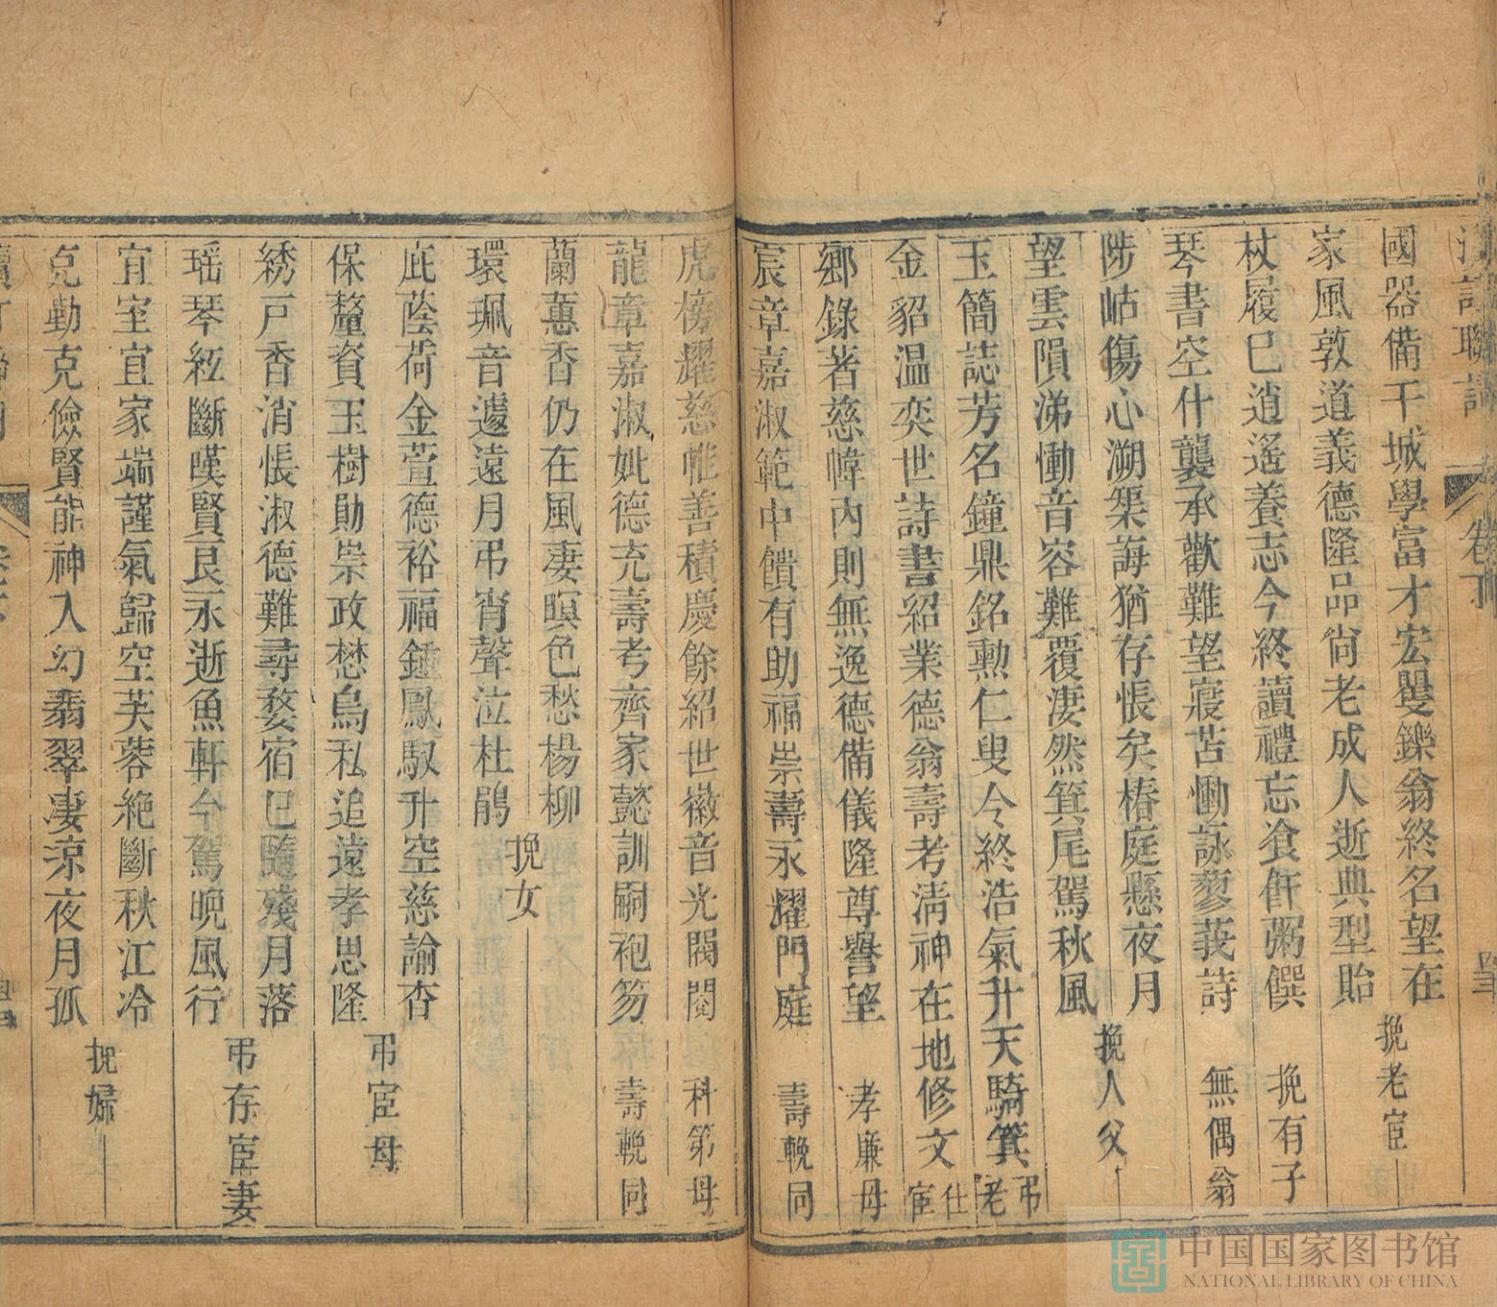 卷下
國器備干城學富才宏矍鑠翁終名望在
家風敦道義德隆品尚老成人逝典型貽
挽老宦
杖履巳逍遙養志今終讀禮忘飡飦粥饌
挽有子
琴書空什襲承歡難望寢苫慟詠蓼莪詩
無偶翁
陟岵傷心溯榘誨猶存悵矣椿庭懸夜月
望雲隕涕慟音容難覆淒然箕尾駕秋風
挽人父
玉簡誌芳名鐘鼎銘勳仁叟令終浩氣升天騎箕
弔老
金貂温奕世詩書紹業德翁壽考淸神在地修文
仕宦
鄉錄著慈幃內則無逸德備儀隆尊譽望
孝廉母
宸章嘉淑範中饋有助福崇壽永耀門庭
壽輓同
虎榜耀慈帷善積慶餘紹世徽音光閥閱
科第母
龍章嘉淑妣德充壽考齊家懿訓嗣袍笏
壽輓同
蘭蕙香仍在風淒暝色愁楊柳
環珮音遽遠月弔宵聲泣杜鵑
挽女
庇蔭荷金萱德裕福鍾鳳馭升空慈諭杳
保釐資玉樹勛崇政懋烏私追遠孝思隆
弔宦母
綉戸香消悵淑德難尋婺宿巳隨殘月落
瑶琴絃斷嘆賢良永逝魚軒今駕晩風行
弔存宦妻
宜室宜家端謹氣歸空芙蓉絶斷秋江冷
克勤克儉賢能神入幻翡翠凄涼夜月孤
挽婦
中国国家图书馆
NATIONAL LIBRARY OF CHINA